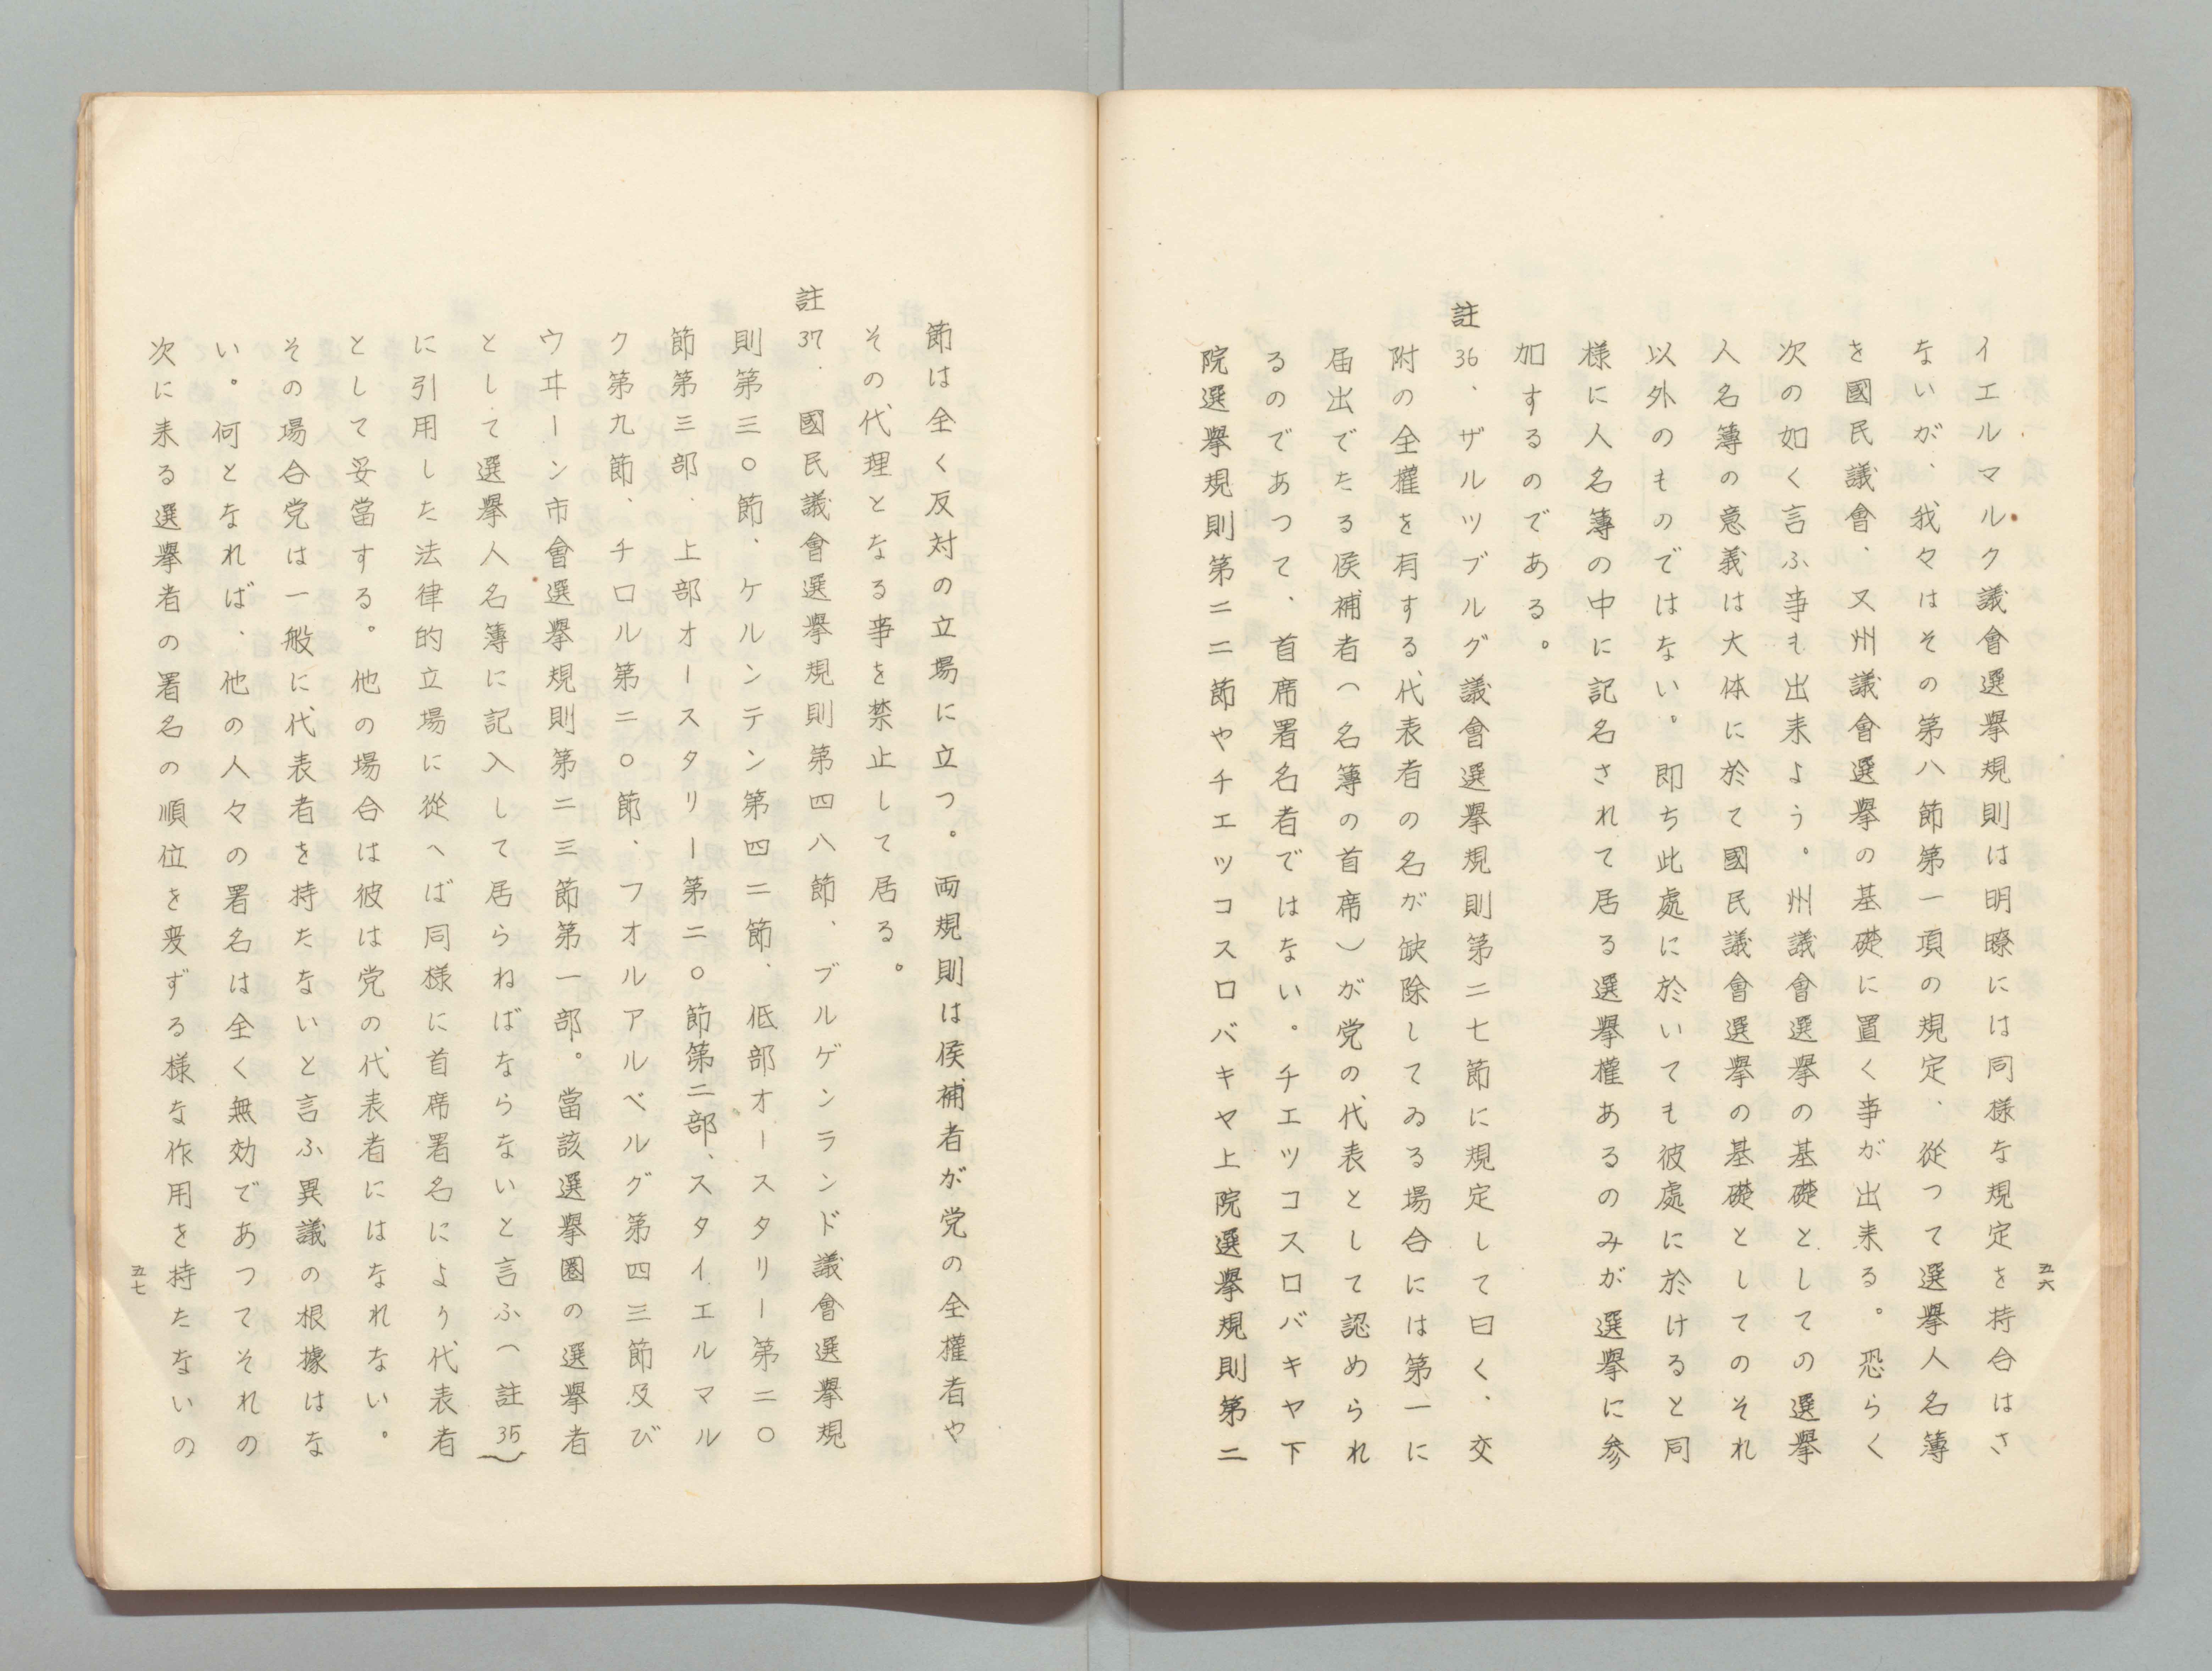 五六
イエルマルク議會選擧規則は明瞭には同様な規定を持合はさ
ないが、我々はその第八節第一項の規定、從つて選擧人名簿
を國民議會、又州議會選擧の基礎に置く事が出来る。恐らく
次の如く言ふ事も出来よう。州議會選擧の基礎としての選擧
人名簿の意義は大体に於て國民議會選擧の基礎としてのそれ
以外のものではない。即ち此處に於いても彼處に於けると同
様に人名簿の中に記名されて居る選擧權あるのみが選擧に参
加するのである。
註36、ザルツブルグ議會選擧規則第二七節に規定して曰く、交
附の全權を有する代表者の名が缺除してゐる場合には第一に
届出でたる侯補者(名簿の首席)が党の代表として認められ
るのであつて、首席署名者ではない。チエツコスロバキヤ下
院選擧規則第二二節やチエツコスロバキヤ上院選擧規則第二
節は全く反対の立場に立つ。両規則は侯補者が党の全權者や
その代理となる事を禁止して居る。
註37.國民議會選擧規則第四八節、ブルゲンランド議會選擧規
則第三〇節、ケルンテン第四二節、低部オースタリー第二〇
節第三部、上部オースタリー第二〇節第二部、スタイエルマル
ク第九節、チロル第二〇節、フオルアルベルグ第四三節及び
ウヰーン市會選擧規則第二三節第一部。當該選擧圏の選擧者
として選擧人名簿に記入して居らねばならないと言ふ(註35)
に引用した法律的立場に從へば同様に首席署名により代表者
として妥當する。他の場合は彼は党の代表者にはなれない。
その場合党は一般に代表者を持たないと言ふ異議の根據はな
い。何となれば、他の人々の署名は全く無効であつてそれの
次に来る選擧者の署名の順位を変ずる様な作用を持たないの
五七